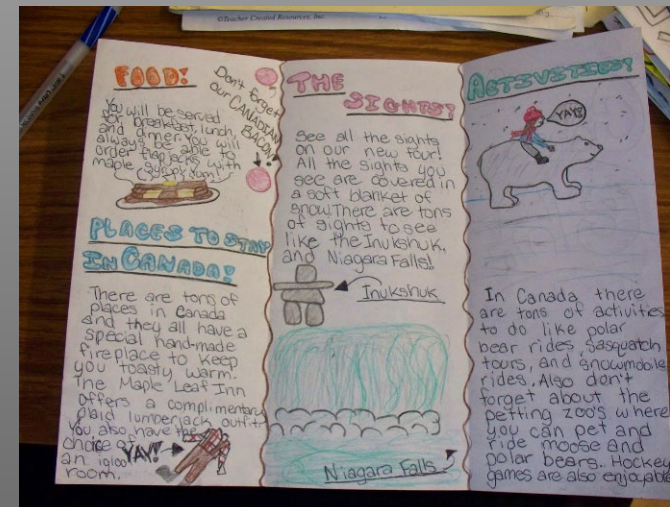 ©Teacher Created Resources, Inc.
FOOD!
You will be served
for breakfast, lunch,
and dinner. You will
always be able to
order flapjacks with
maple syrup
Yum!
Don't forget
our CANADIAN
BACON!
PLACES TO STAY
IN CANADA!
There are tons of
places in Canada
and they all have a
special hand-made
fireplace to keep
you toasty warm!
The Maple Leaf Inn
offers a complimentary
plaid lumberjack outfit!
You also have the
choice of
an igloo
room.
YAY!
THE
SIGHTS!
See all the sights
on our new tour!
All the sights you
see are covered in
a soft blanket of
snow. There are tons
of sights to see
like the Inukshuk,
and Niagara Falls!
Inukshuk
Niagara Falls
ACTIVITIES!
YAY!
In Canada, there
are tons of activities
to do like polar
bear rides, Sasquatch
tours, and snowmobile
rides. Also don't
forget about the
petting zoo's where
you can pet and
ride moose and
polar bears. Hockey
games are also enjoyable